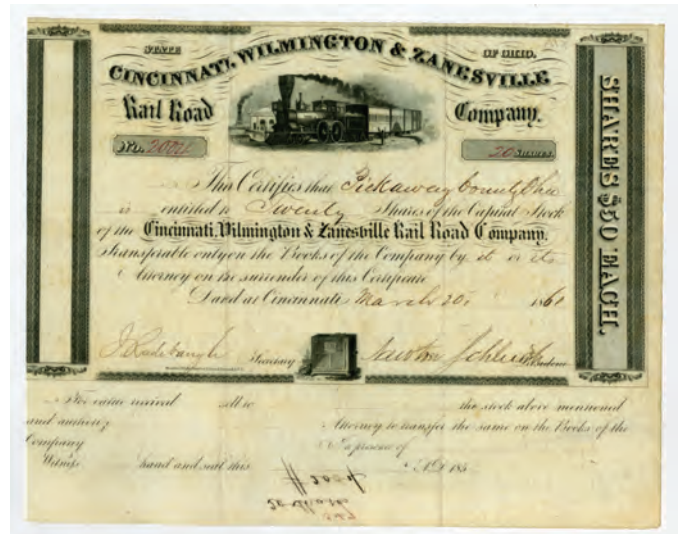 STATE OF OHIO.
CINCINNATI, WILMINGTON & ZANESVILLE
Rail Road Company.
No. 2004 20 SHARES.
This Certifies that Pickaway County Ohio
is entitled to Twenty Shares of the Capital Stock
of the Cincinnati, Wilmington & Zanesville Rail Road Company.
Transferable only on the Books of the Company by it or its
Attorney on the surrender of this Certificate
Dated at Cincinnati March 20, 186
Secretary President
SHARES $50 EACH.
For value received sell to the stock above mentioned
and authorize Attorney to transfer the same on the Books of the
Company In presence of
Witness hand and seal this A.D. 185
# 2004